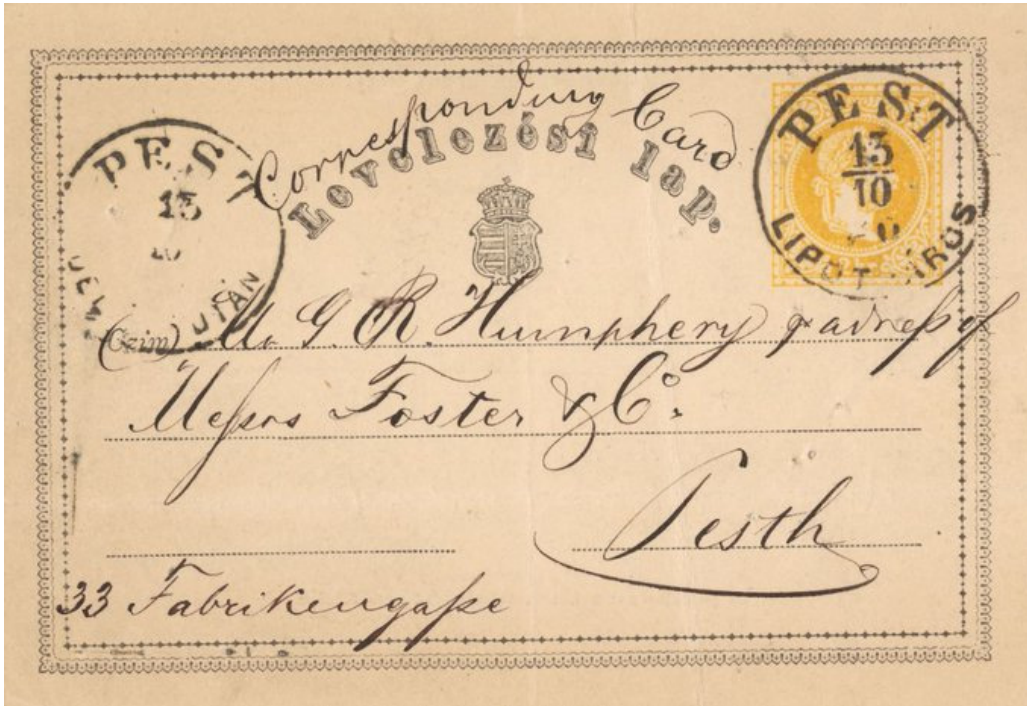 Corresponding Card
Levelezési lap.
PEST
13
UTÁN
PEST
13
10
LIPÓTVÁROS
(Czim) Mr G. R. Humphery p adress of
Messrs Foster & Co.
Pesth
33 Fabrikengasse